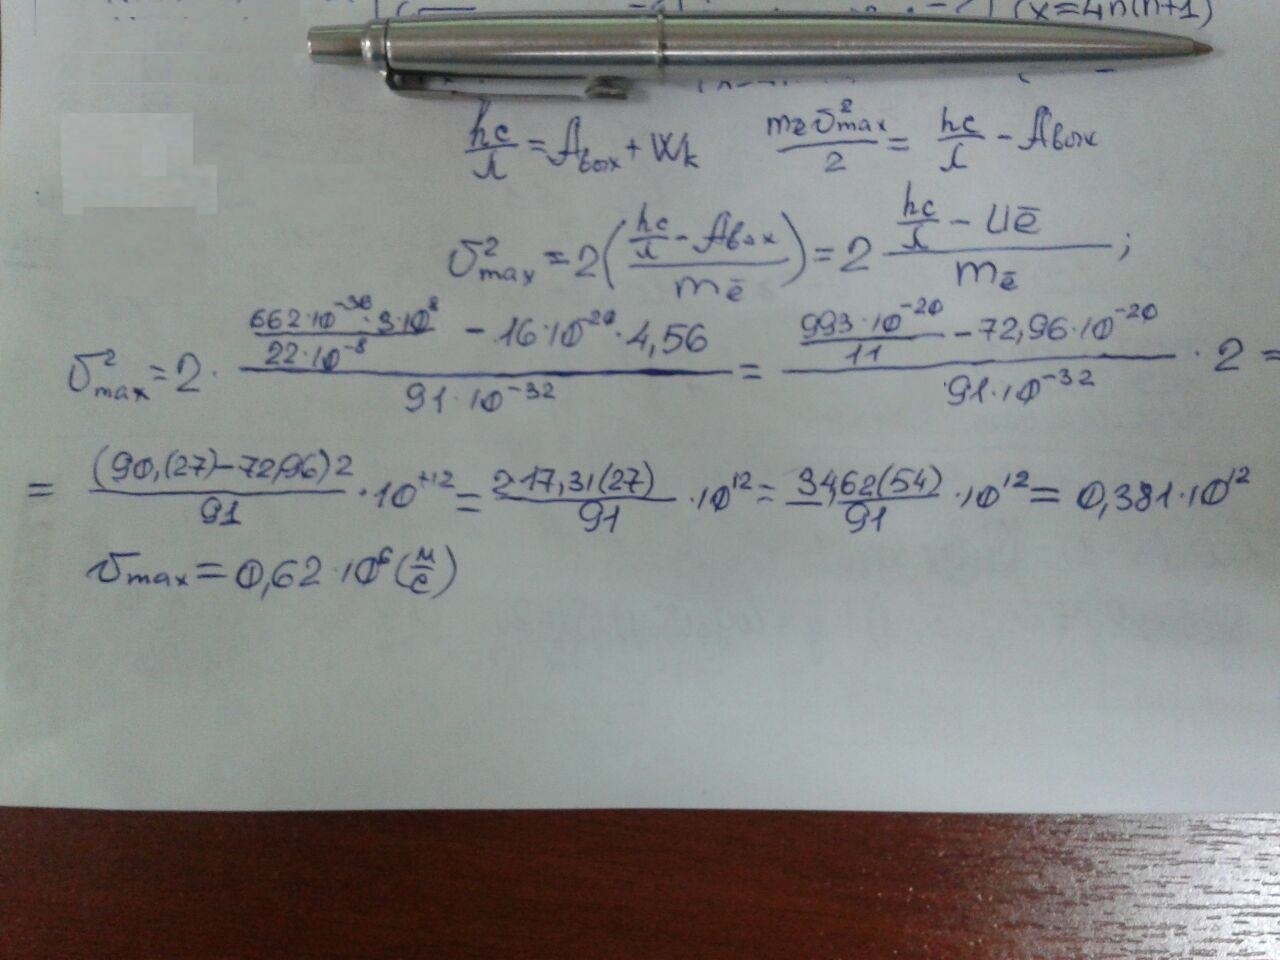 x=4n(n+1)
hc/λ = Aвых + Wk   mēʋ²max/2 = hc/λ - Aвых
ʋ²max = 2((hc/λ - Aвых)/mē) = 2 (hc/λ - Uē)/mē ;
ʋ²max = 2 · (662·10⁻³⁶·3·10⁸/22·10⁻⁸ - 16·10⁻²⁰·4,56)/91·10⁻³² = (993·10⁻²⁰/11 - 72,96·10⁻²⁰)/91·10⁻³² · 2 =
= (90,(27)-72,96)2/91 · 10⁺¹² = 2·17,31(27)/91 · 10¹² = 34,62(54)/91 · 10¹² = 0,381·10¹²
ʋmax = 0,62·10⁶ (м/с)